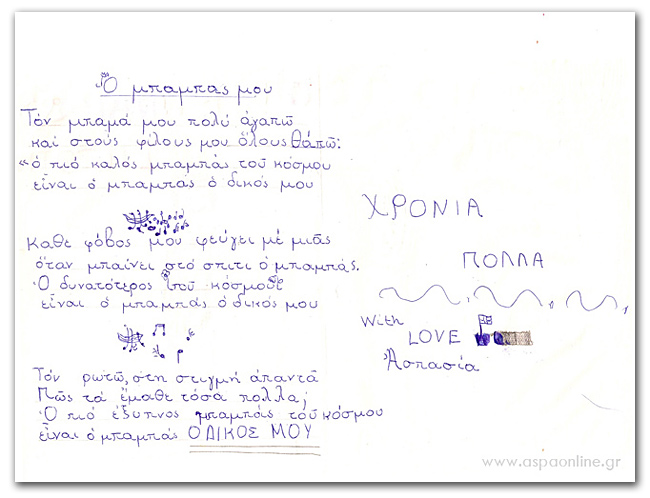 Ὁ μπαμπάς μου
Τόν μπαμά μου πολύ ἀγαπῶ
καί στούς φίλους μου ὅλους θάπῶ:
«ὁ πιό καλός μπαμπάς τοῦ κόσμου
εἶναι ὁ μπαμπάς ὁ δικός μου
Κάθε φόβος μου φεύγει μέ μιᾶς
ὅταν μπαίνει στό σπιτι ὁ μπαμπάς.
Ὁ δυνατότερος τοῦ κόσμου
εἶναι ὁ μπαμπάς ὁ δικός μου
Τόν ρωτῶ, στη στιγμή ἀπαντᾶ
Πῶς τά ἔμαθε τόσα πολλα;
Ὁ πιό ἔξυπνος μπαμπάς τοῦ κόσμου
εἶναι ὁ μπαμπάς Ο ΔΙΚΟΣ ΜΟΥ
ΧΡΟΝΙΑ
ΠΟΛΛΑ
With
LOVE
Ἀσπασία
www.aspaonline.gr